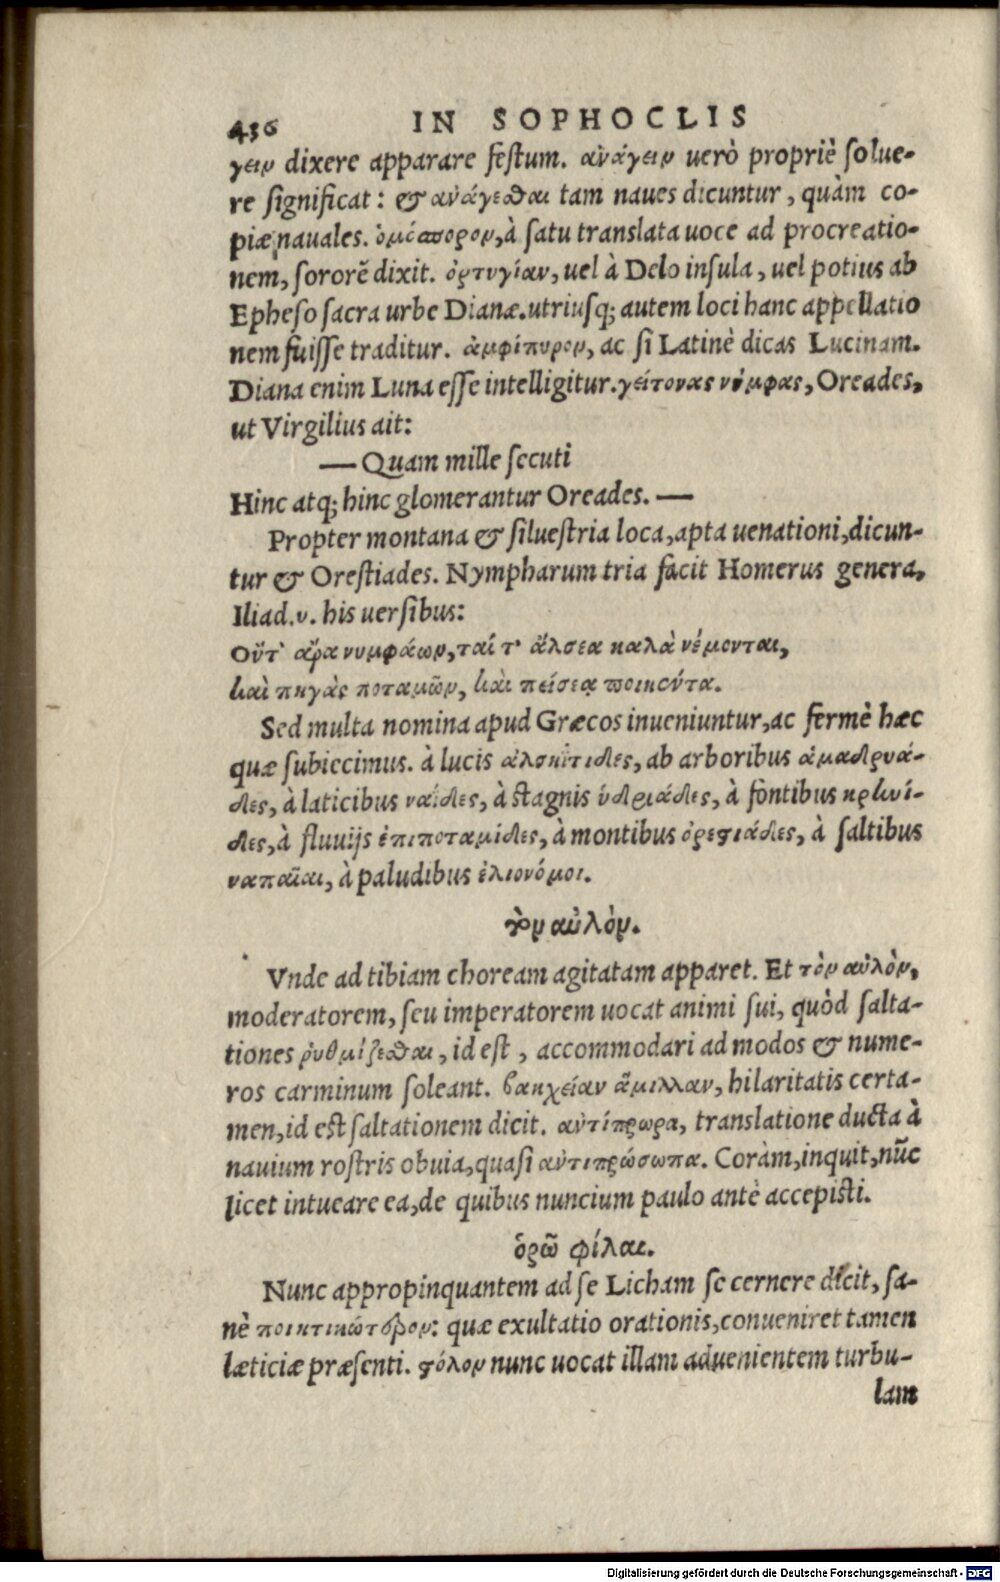 436 IN SOPHOCLIS
γειν dixere apparare festum. ἀνάγειν uerò propriè solue-
re significat: & ἀνάγεσθαι tam naues dicuntur, quàm co-
piæ nauales. ὁμόσπορον, à satu translata uoce ad procreatio-
nem, sororẽ dixit. ὀρτυγίαν, uel à Delo insula, uel potius ab
Epheso sacra urbe Dianæ. utriusq; autem loci hanc appellatio
nem fuisse traditur. ἀμφίπυρον, ac si Latinè dicas Lucinam.
Diana enim Luna esse intelligitur. γείτονας νύμφας, Oreades,
ut Virgilius ait:
— Quam mille secuti
Hinc atq; hinc glomerantur Oreades. —
Propter montana & siluestria loca, apta uenationi, dicun-
tur & Orestiades. Nympharum tria facit Homerus genera,
Iliad. υ. his uersibus:
Οὔτ' ἄρα νυμφάων, ταί τ' ἄλσεα καλὰ νέμονται,
καὶ πηγὰς ποταμῶν, καὶ πείσεα ποιήεντα.
Sed multa nomina apud Græcos inueniuntur, ac fermè hæc
quæ subiecimus. à lucis ἀλσηΐτιδες, ab arboribus ἁμαδρυά-
δες, à laticibus ναΐδες, à stagnis ὑδριάδες, à fontibus κρηνί-
δες, à fluuijs ἐπιποταμίδες, à montibus ὀρεστιάδες, à saltibus
ναπαῖαι, à paludibus ἑλιονόμοι.
τὸν αὐλὸν.
Vnde ad tibiam choream agitatam apparet. Et τὸν αὐλὸν,
moderatorem, seu imperatorem uocat animi sui, quòd salta-
tiones ῥυθμίζεσθαι, id est, accommodari ad modos & nume-
ros carminum soleant. βακχείαν ἅμιλλαν, hilaritatis certa-
men, id est saltationem dicit. ἀντίπρωρα, translatione ducta à
nauium rostris obuia, quasi ἀντιπρόσωπα. Coràm, inquit, nũc
licet intueare ea, de quibus nuncium paulo antè accepisti.
ὁρῶ φίλαι.
Nunc appropinquantem ad se Licham se cernere dicit, sa-
nè ποιητικώτερον: quæ exultatio orationis, conueniret tamen
læticiæ præsenti. στόλον nunc uocat illam aduenientem turbu-
lam
Digitalisierung gefördert durch die Deutsche Forschungsgemeinschaft - DFG